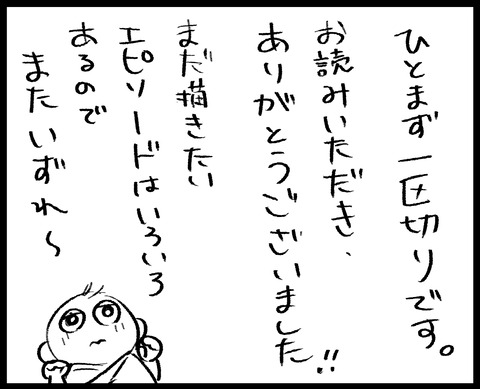 ひとまず一区切りです。
お読みいただき、
ありがとうございました!!
まだ描きたい
エピソードはいろいろ
あるので
またいずれ~